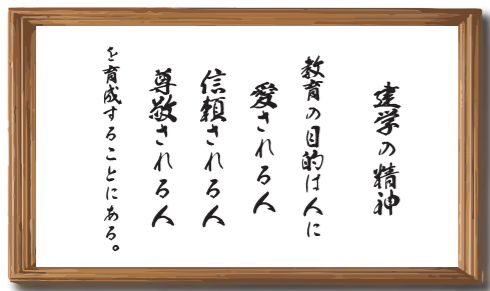 建学の精神
教育の目的は人に
愛される人
信頼される人
尊敬される人
を育成することにある。